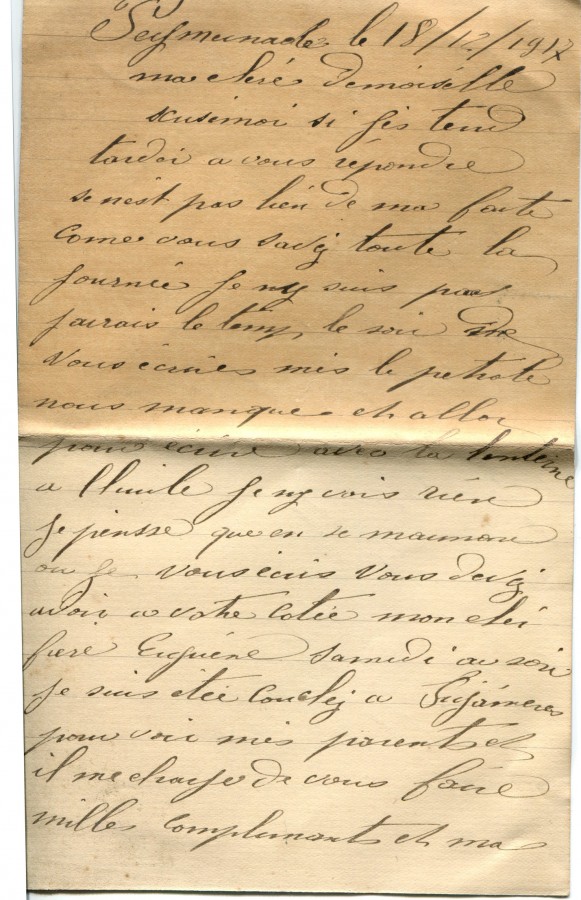 le 18/12/1917
ma chére Demoiselle
scusémoi si jes tend
tardéi a vous répondre
se nést pas bién de ma faute
come vous savéz toute la
journée je ny suis pas
jaurais le temp le soir de
vous écrires mis le petrole
nous manque et allor
pour ecrire avec la lenterne
a lhuile je ny vois rién
je piensse que en se maumant
ou je vous ecris vous devéz
avoir a votre cotée mon chér
frere Euguéne samedi au soir
je suis étée couchéz a
pour voir més parent et
il me charge de vous faire
milles complimants et ma